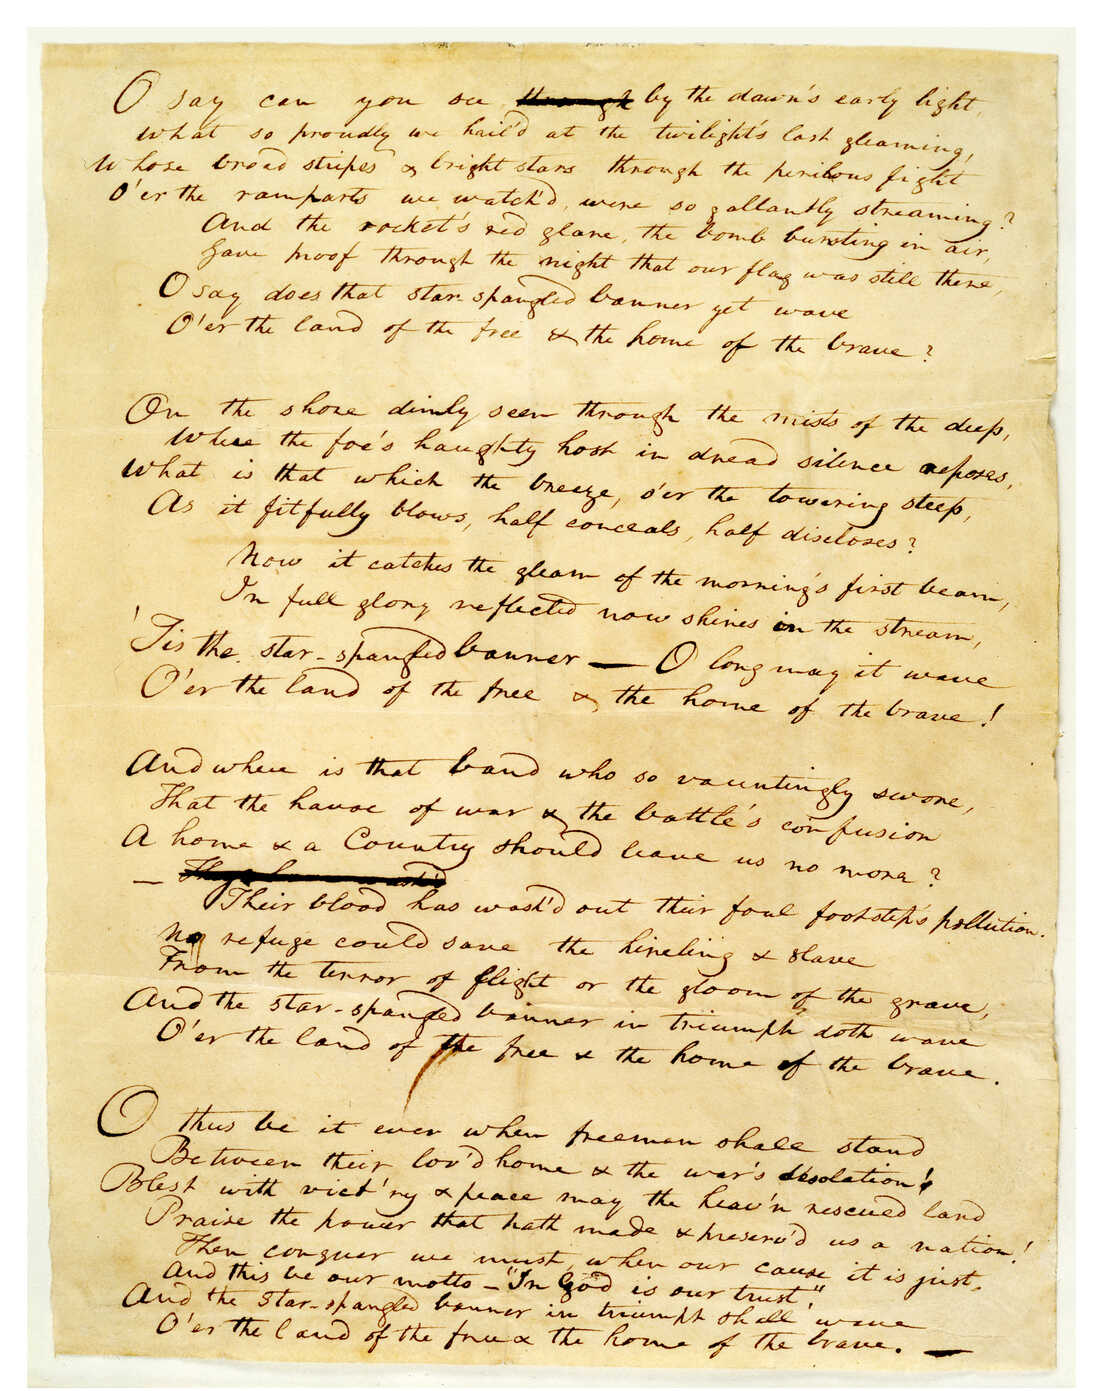 O say can you see through by the dawn's early light,
What so proudly we hail'd at the twilight's last gleaming,
Whose broad stripes & bright stars through the perilous fight
O'er the ramparts we watch'd, were so gallantly streaming?
And the rocket's red glare, the bomb bursting in air,
Gave proof through the night that our flag was still there,
O say does that star-spangled banner yet wave
O'er the land of the free & the home of the brave?
On the shore dimly seen through the mists of the deep,
Where the foe's haughty host in dread silence reposes,
What is that which the breeze, o'er the towering steep,
As it fitfully blows, half conceals, half discloses?
Now it catches the gleam of the morning's first beam,
In full glory reflected now shines in the stream,
'Tis the star-spangled banner — O long may it wave
O'er the land of the free & the home of the brave!
And where is that band who so vauntingly swore,
That the havoc of war & the battle's confusion
A home & a Country should leave us no more?
—
Their blood has wash'd out their foul footstep's pollution.
No refuge could save the hireling & slave
From the terror of flight or the gloom of the grave,
And the star-spangled banner in triumph doth wave
O'er the land of the free & the home of the brave.
O thus be it ever when freemen shall stand
Between their lov'd home & the war's desolation!
Blest with vict'ry & peace may the heav'n rescued land
Praise the power that hath made & preserv'd us a nation!
Then conquer we must, when our cause it is just,
And this be our motto – "In God is our trust,"
And the star-spangled banner in triumph shall wave
O'er the land of the free & the home of the brave. —